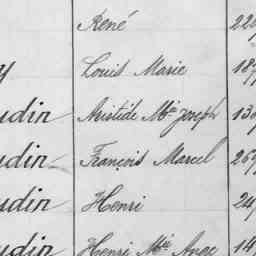 René 22
y Louis Marie 18
udin Aristide Mie Joseph 13
udin François Marcel 26
udin Henri 24
udin Henri Mie Ange 14